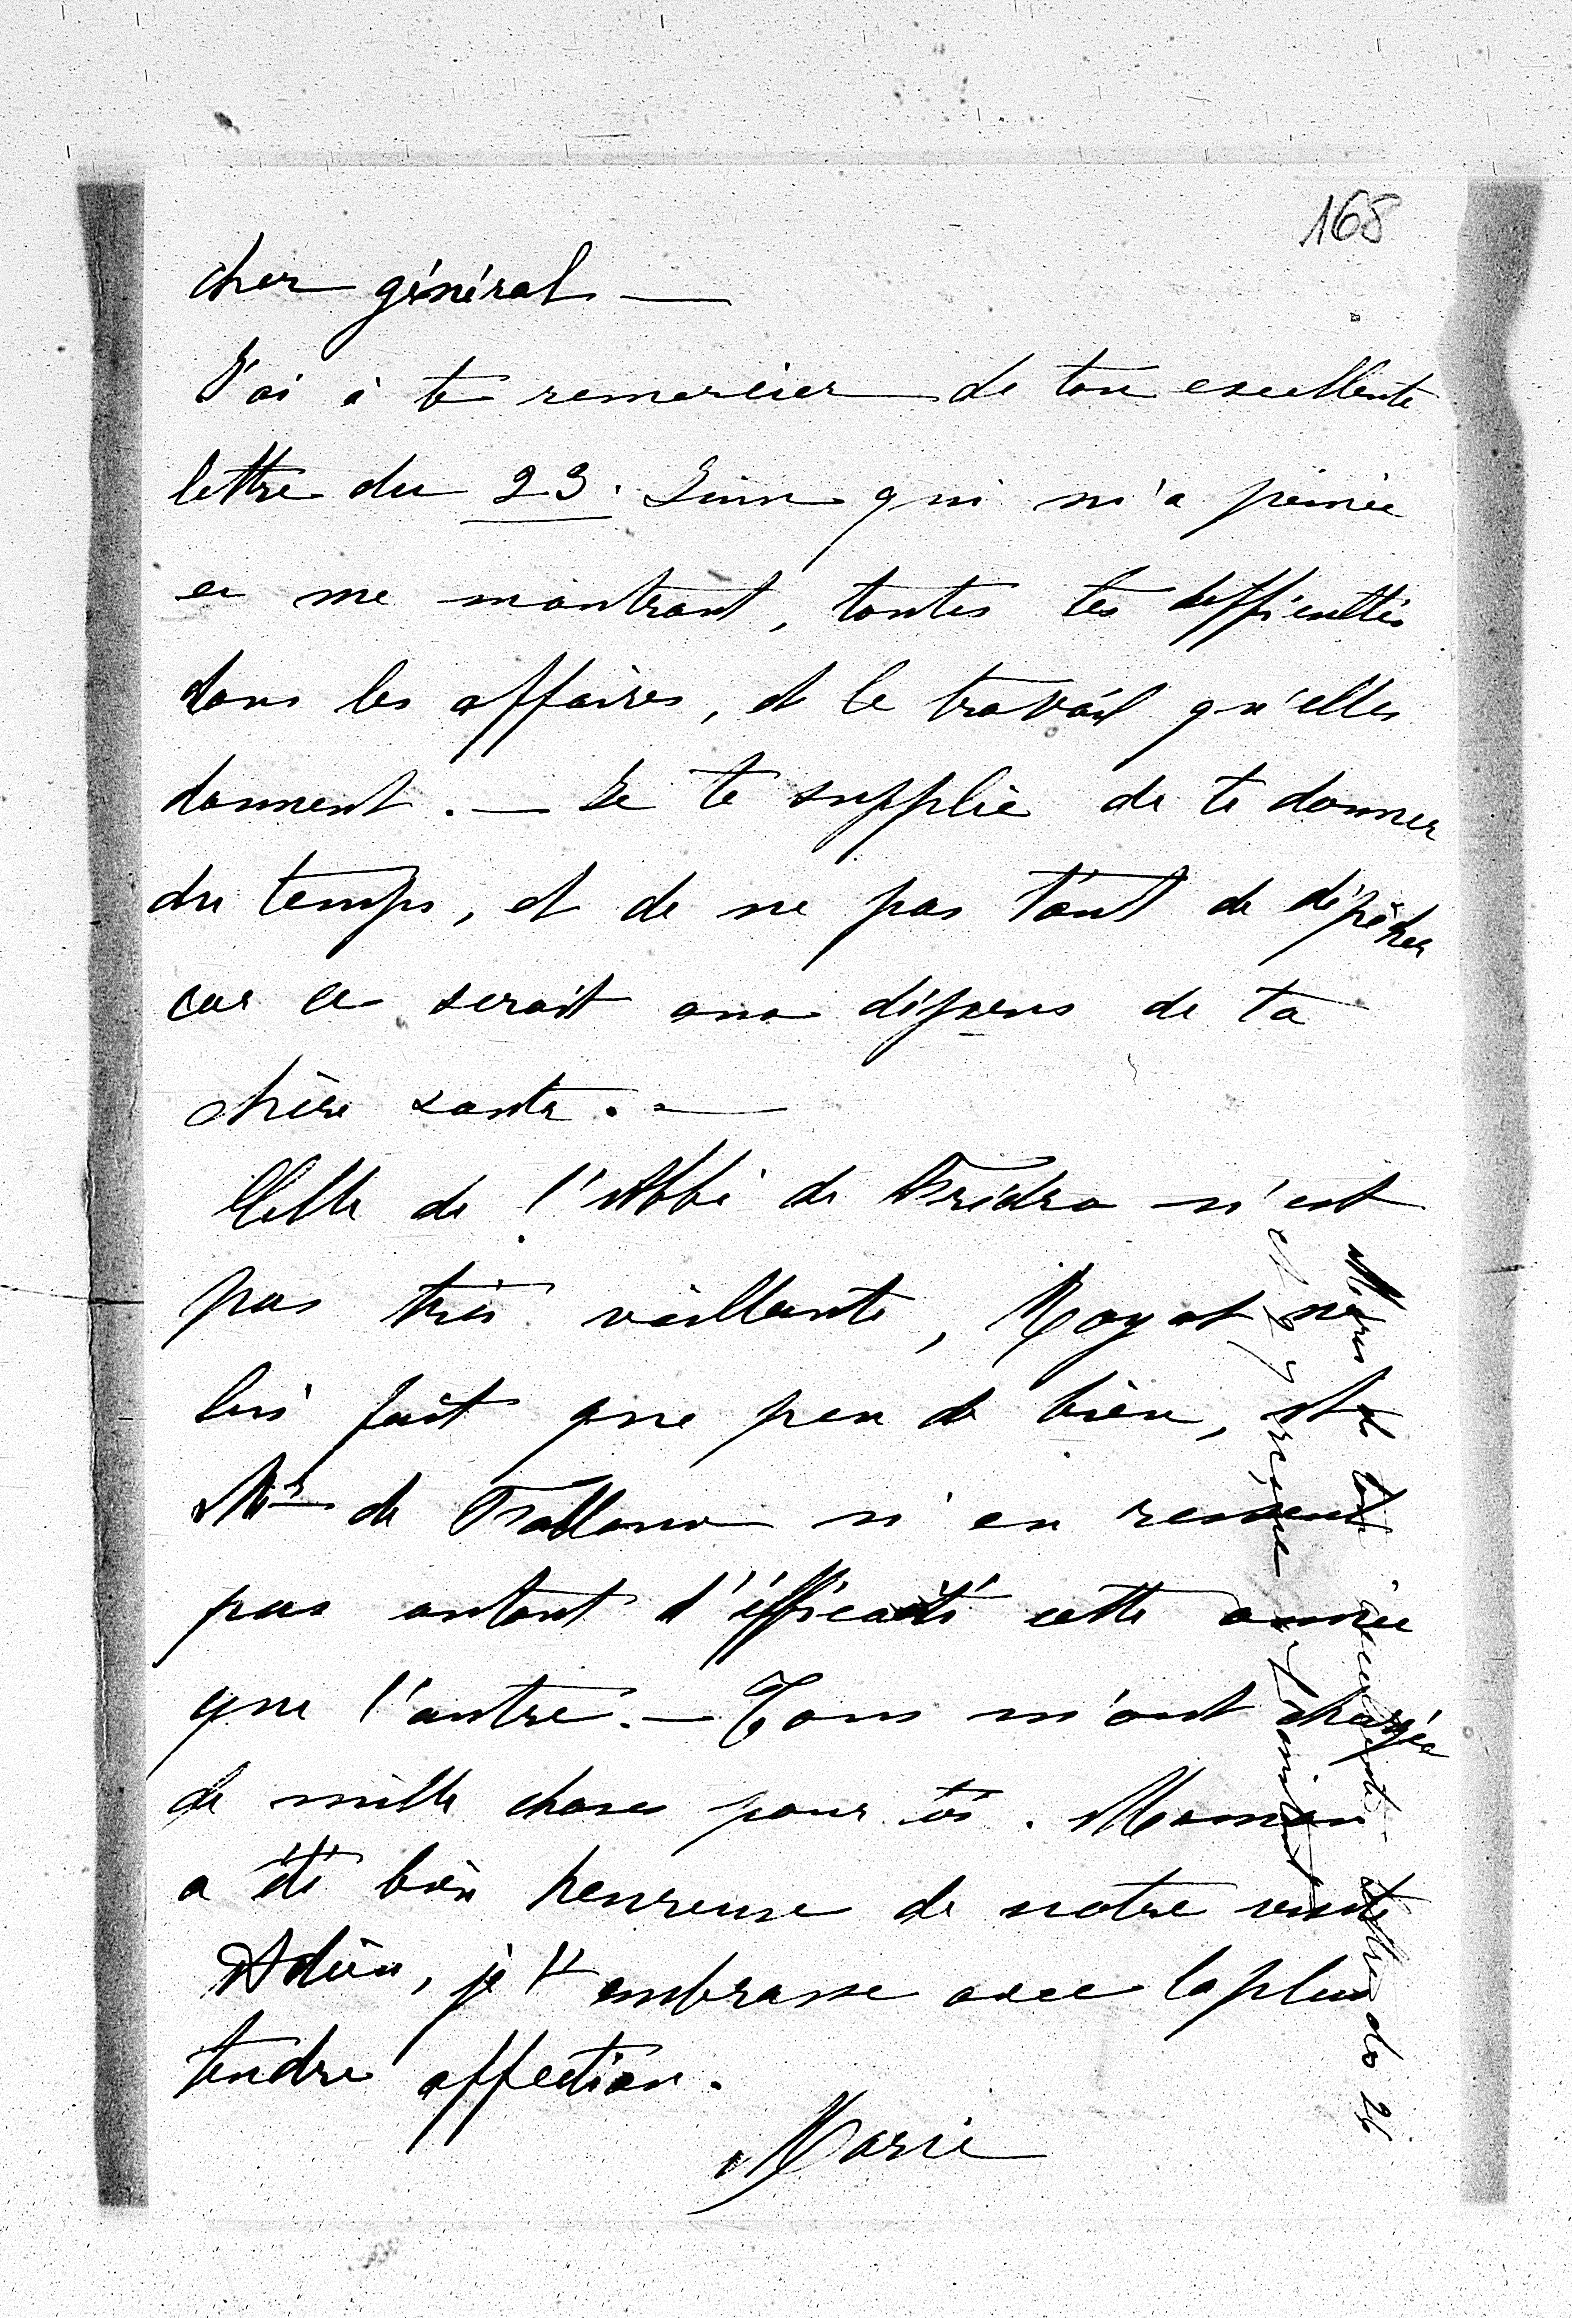 168
cher général —
J'ai à te remercier de ton excellente
lettre du 23. Juin qui m'a peinée
en me montrant, toutes tes difficultés
dans les affaires, et le travail qu'elles
donnent. — Je te supplie de te donner
du temps, et de ne pas tant de dépêcher
car ce serait aux dépens de ta
chère santé. —
Celle de l'Abbé de Fredro n'est
pas très vaillante, Royat ne
lui fait que peu de bien, et
Mr de n'en ressent
pas autant d'éfficacité cette année
que l'autre. — Tous m'ont chargée
de mille choses pour toi. Maman
a été bien heureuse de notre visite
Adieu, je t'embrasse avec la plus
tendre affection.
Marie
Merci de ton lettre du 25
et 27 reçue